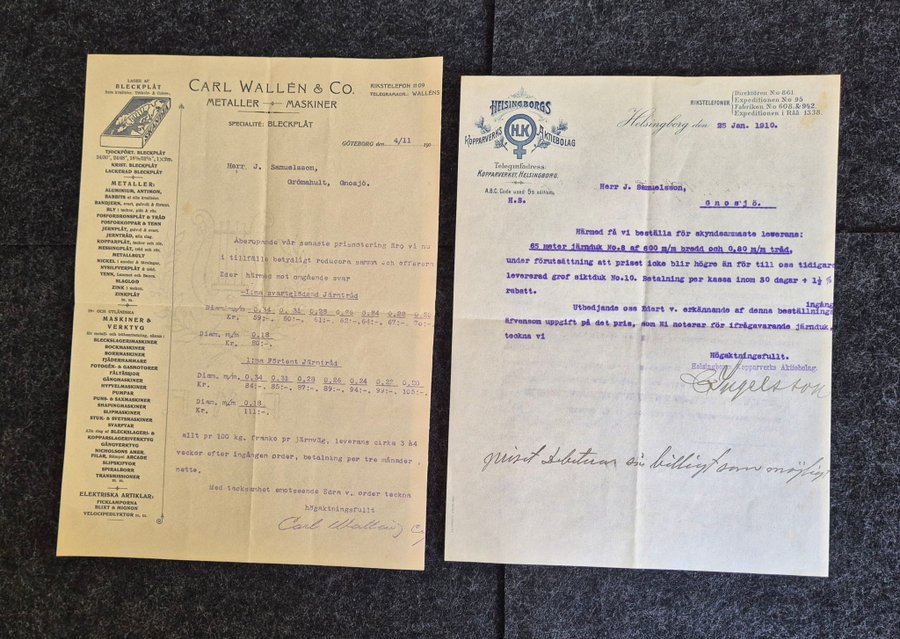 LAGER AF
BLECKPLÅT
TJOCKFÖRT. BLECKPLÅT
KRIST. BLECKPLÅT
LACKERAD BLECKPLÅT
METALLER:
ALUMINIUM, ANTIMON,
BABBITS
BANDJERN, svart, galvdt & förtent.
BLY
FOSFORBRONSPLÅT & TRÅD
FOSFORKOPPAR & TENN
JERNPLÅT, galvdt & svart.
JERNTRÅD, alla slag.
KOPPARPLÅT,
MESSINGPLÅT,
METALLBULT
NICKEL
NYSILFVERPLÅT & tråd.
TENN,
SLAGLOD
ZINK
ZINKPLÅT
m. m.
IN- OCH UTLÄNDSKA
MASKINER &
VERKTYG
BLECKSLAGERIMASKINER
BOCKMASKINER
BORRMASKINER
FJÄDERHAMMARE
FOTOGÉN- & GASMOTORER
FÄLTÄSSJOR
GÄNGMASKINER
HYFVELMASKINER
PUMPAR
PUNS- & SAXMASKINER
SHAPINGMASKINER
SLIPMASKINER
STUK- & SVETSMASKINER
SVARFVAR
Alla slag af BLECKSLAGERI- &
KOPPARSLAGERIVERKTYG
GÄNGVERKTYG
NICHOLSONS ANER.
FILAR, Stämpel ARCADE
SLIPSKIFVOR
SPIRALBORR
TRANSMISSIONER
m. m.
ELEKTRISKA ARTIKLAR:
FICKLAMPORNA
BLIXT & MIGNON
VELOCIPEDLYKTOR m. m.
CARL WALLÉN & CO.
METALLER MASKINER
SPECIALITÉ: BLECKPLÅT
RIKSTELEFON 1109
TELEGRAMADR.: WALLÉNS
GÖTEBORG den 4/11 190
Herr J. Samuelsson,
Grömahult, Gnosjö.
Åberopande vår senaste prisnotering äro vi nu
i tillfälle betydligt reducera samma och offerera
Eder härmed mot omgående svar
I:ma svartglödgad Järntråd
Diam. m/m 0,34 0,31 0,28 0,26 0,24 0,22 0,20
Kr. 59:-. 60:-. 61:-. 62:-. 64:-. 67:-. 70:-.
Diam. m/m 0,18
Kr.
I:ma Förtent Järntråd
Diam. m/m 0,34 0,31 0,28 0,26 0,24 0,22 0,20
Kr. 84:-. 85:-. 87:-. 89:-. 94:-. 99:-. 105:-.
Diam. m/m 0,18
Kr. 111:-.
allt pr 100 kg. franko pr järnväg, leverans cirka 3 à4
veckor efter ingången order, betalning per tre månader
netto.
Med tacksamhet emotseende Edra v. order teckna
högaktningsfullt
Carl Wallén & Co
HELSINGBORGS
KOPPARVERKS AKTIEBOLAG
HK
Telegrafadress:
KOPPARVERKET, HELSINGBORG.
A.B.C. Code used 5th edition.
H.S.
RIKSTELEFONER
Direktören No 861.
Expeditionen No 95
Fabriken No 608 & 942.
Expeditionen i Råå 1338.
Helsingborg den 25 Jan. 1910.
Herr J. Samuelsson,
Gnosjö.
Härmed få vi beställa för skyndsammaste leverans:
65 meter järnduk No.8 af 600 m/m bredd och 0,80 m/m tråd,
under förutsättning att priset icke blir högre än för till oss tidigare
levererad grof siktduk No.10. Betalning per kassa inom 30 dagar + 1½ %
rabatt.
Utbedjande oss Edert v. erkännande af denna beställnings ingång
äfvensom uppgift på det pris, som Ni noterar för ifrågavarande järnduk,
teckna vi
Högaktningsfullt.
Helsingborgs Kopparverks Aktiebolag.
priset debiteras så billigt som möjligt